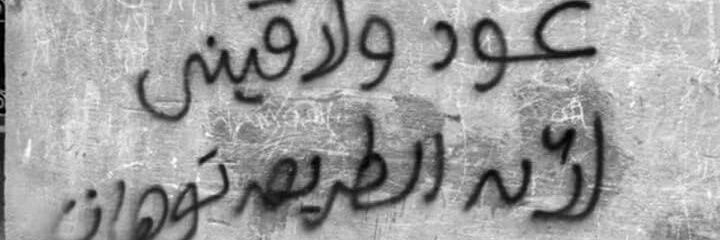 عود ولاقيني
لأنه الطريق توهان